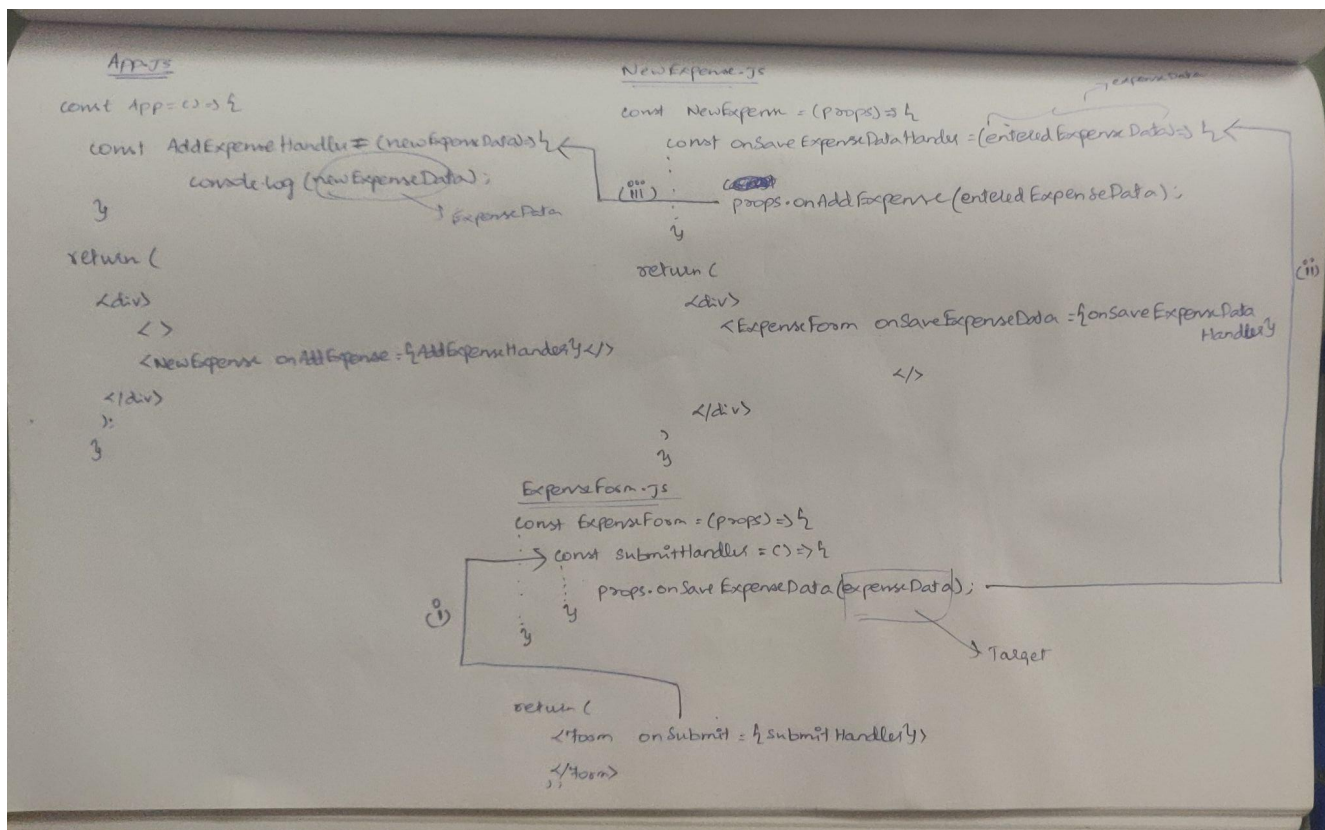 App.JS
const App = () => {
const AddExpenseHandler = (newExpenseData) => {
console.log (newExpenseData);
ExpenseData
}
return (
<div>
< >
<NewExpense onAddExpense = {AddExpenseHander}</>
</div>
);
}
NewExpense.JS
expenseData
const NewExpense = (props) => {
const onSaveExpenseDataHandler = (enteredExpenseData) => {
(iii)
props.onAddExpense (enteredExpenseData);
}
(ii)
return (
<div>
<ExpenseForm onSaveExpenseData = {onSaveExpenseData
Handler}
</>
</div>
)
}
ExpenseForm.JS
const ExpenseForm = (props) => {
const submitHandler = () => {
props.onSaveExpenseData (expenseData);
}
(i)
}
Target
return (
<form onSubmit = {submitHandler}>
</form>
);